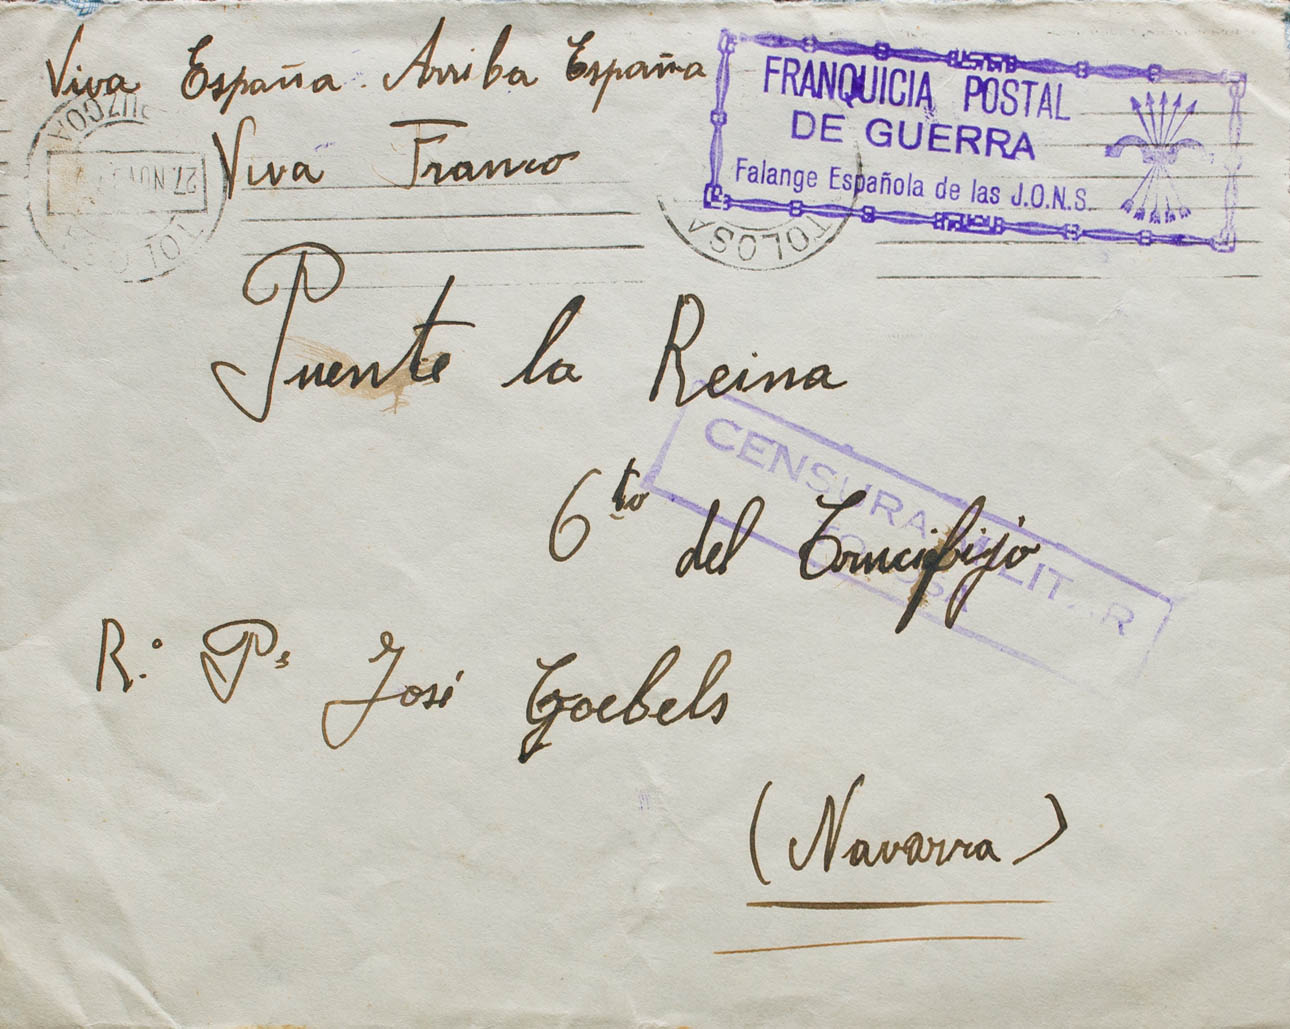 Viva España. Arriba España
Viva Franco
FRANQUICIA POSTAL
DE GUERRA
Falange Española de las J.O.N.S.
27 NOV
TOLOSA
Puente la Reina
6to del Crucifijo
CENSURA MILITAR
TOLOSA
R.º Ps José Goebels
(Navarra)